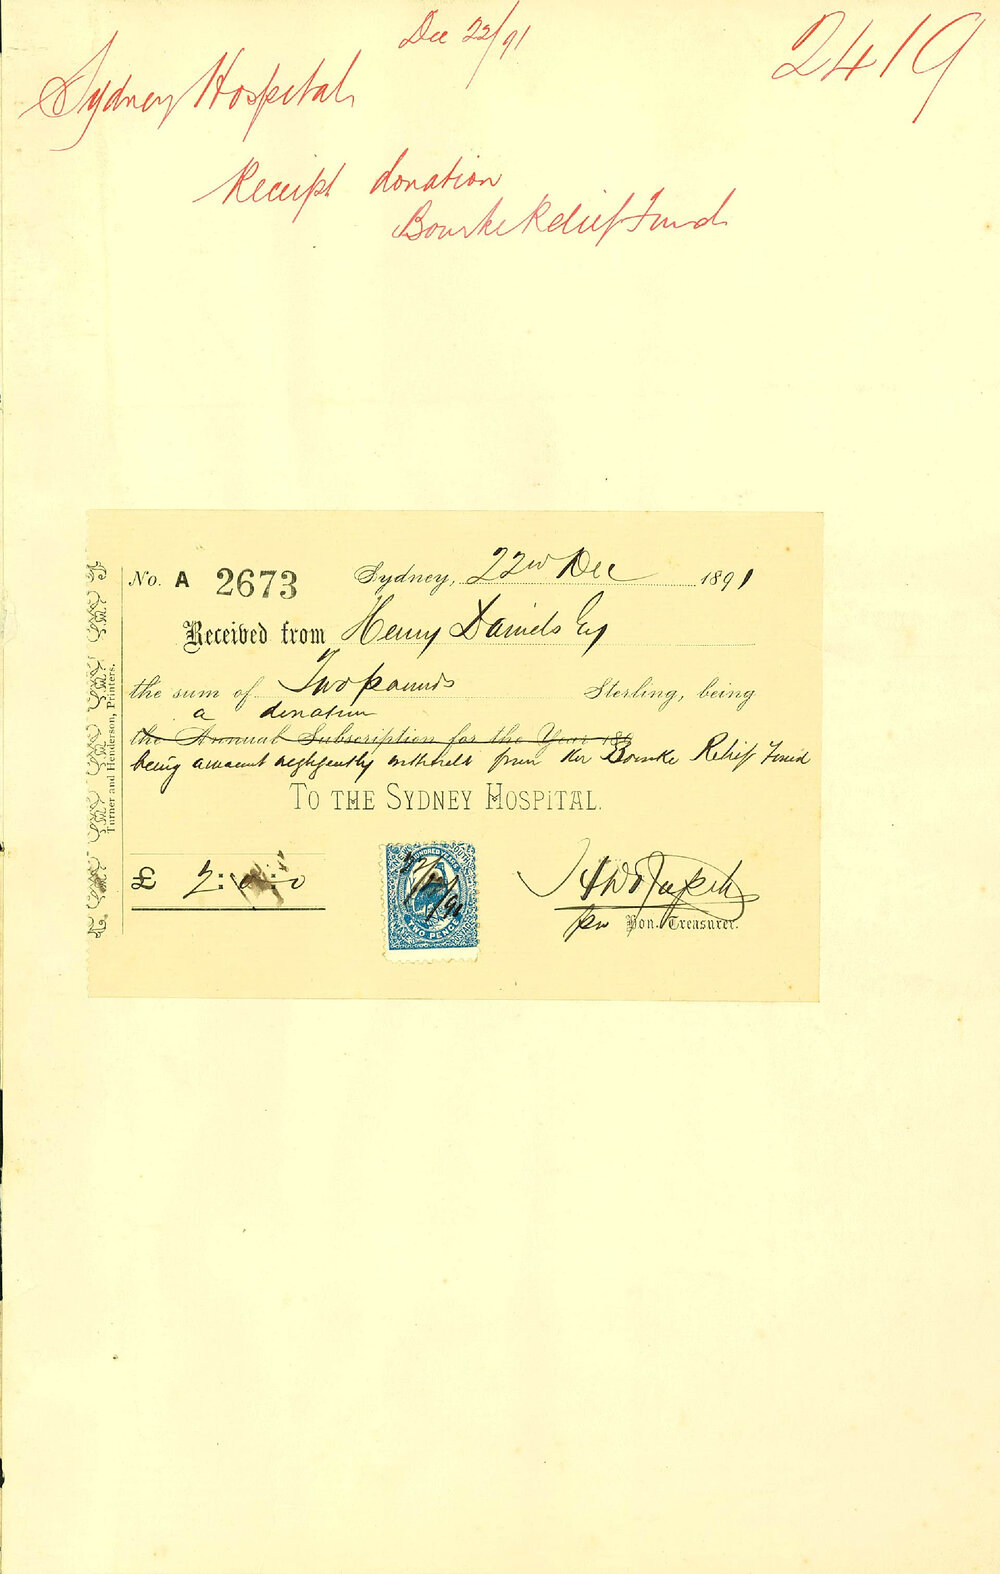 Dec 22/91
2419
Sydney Hospital
Receipt donation
Bourke Relief Fund
No. A 2673 Sydney, 22nd Dec 1891
Received from Henry Daniels Esq
the sum of Two pounds Sterling, being
a donation
the Annual Subscription for the Year 18
being amount negligently withheld from the Bourke Relief Fund
TO THE SYDNEY HOSPITAL.
£ 2:0:0
22/12/91
TWO PENCE
per Hon. Treasurer.
Turner and Henderson, Printers.